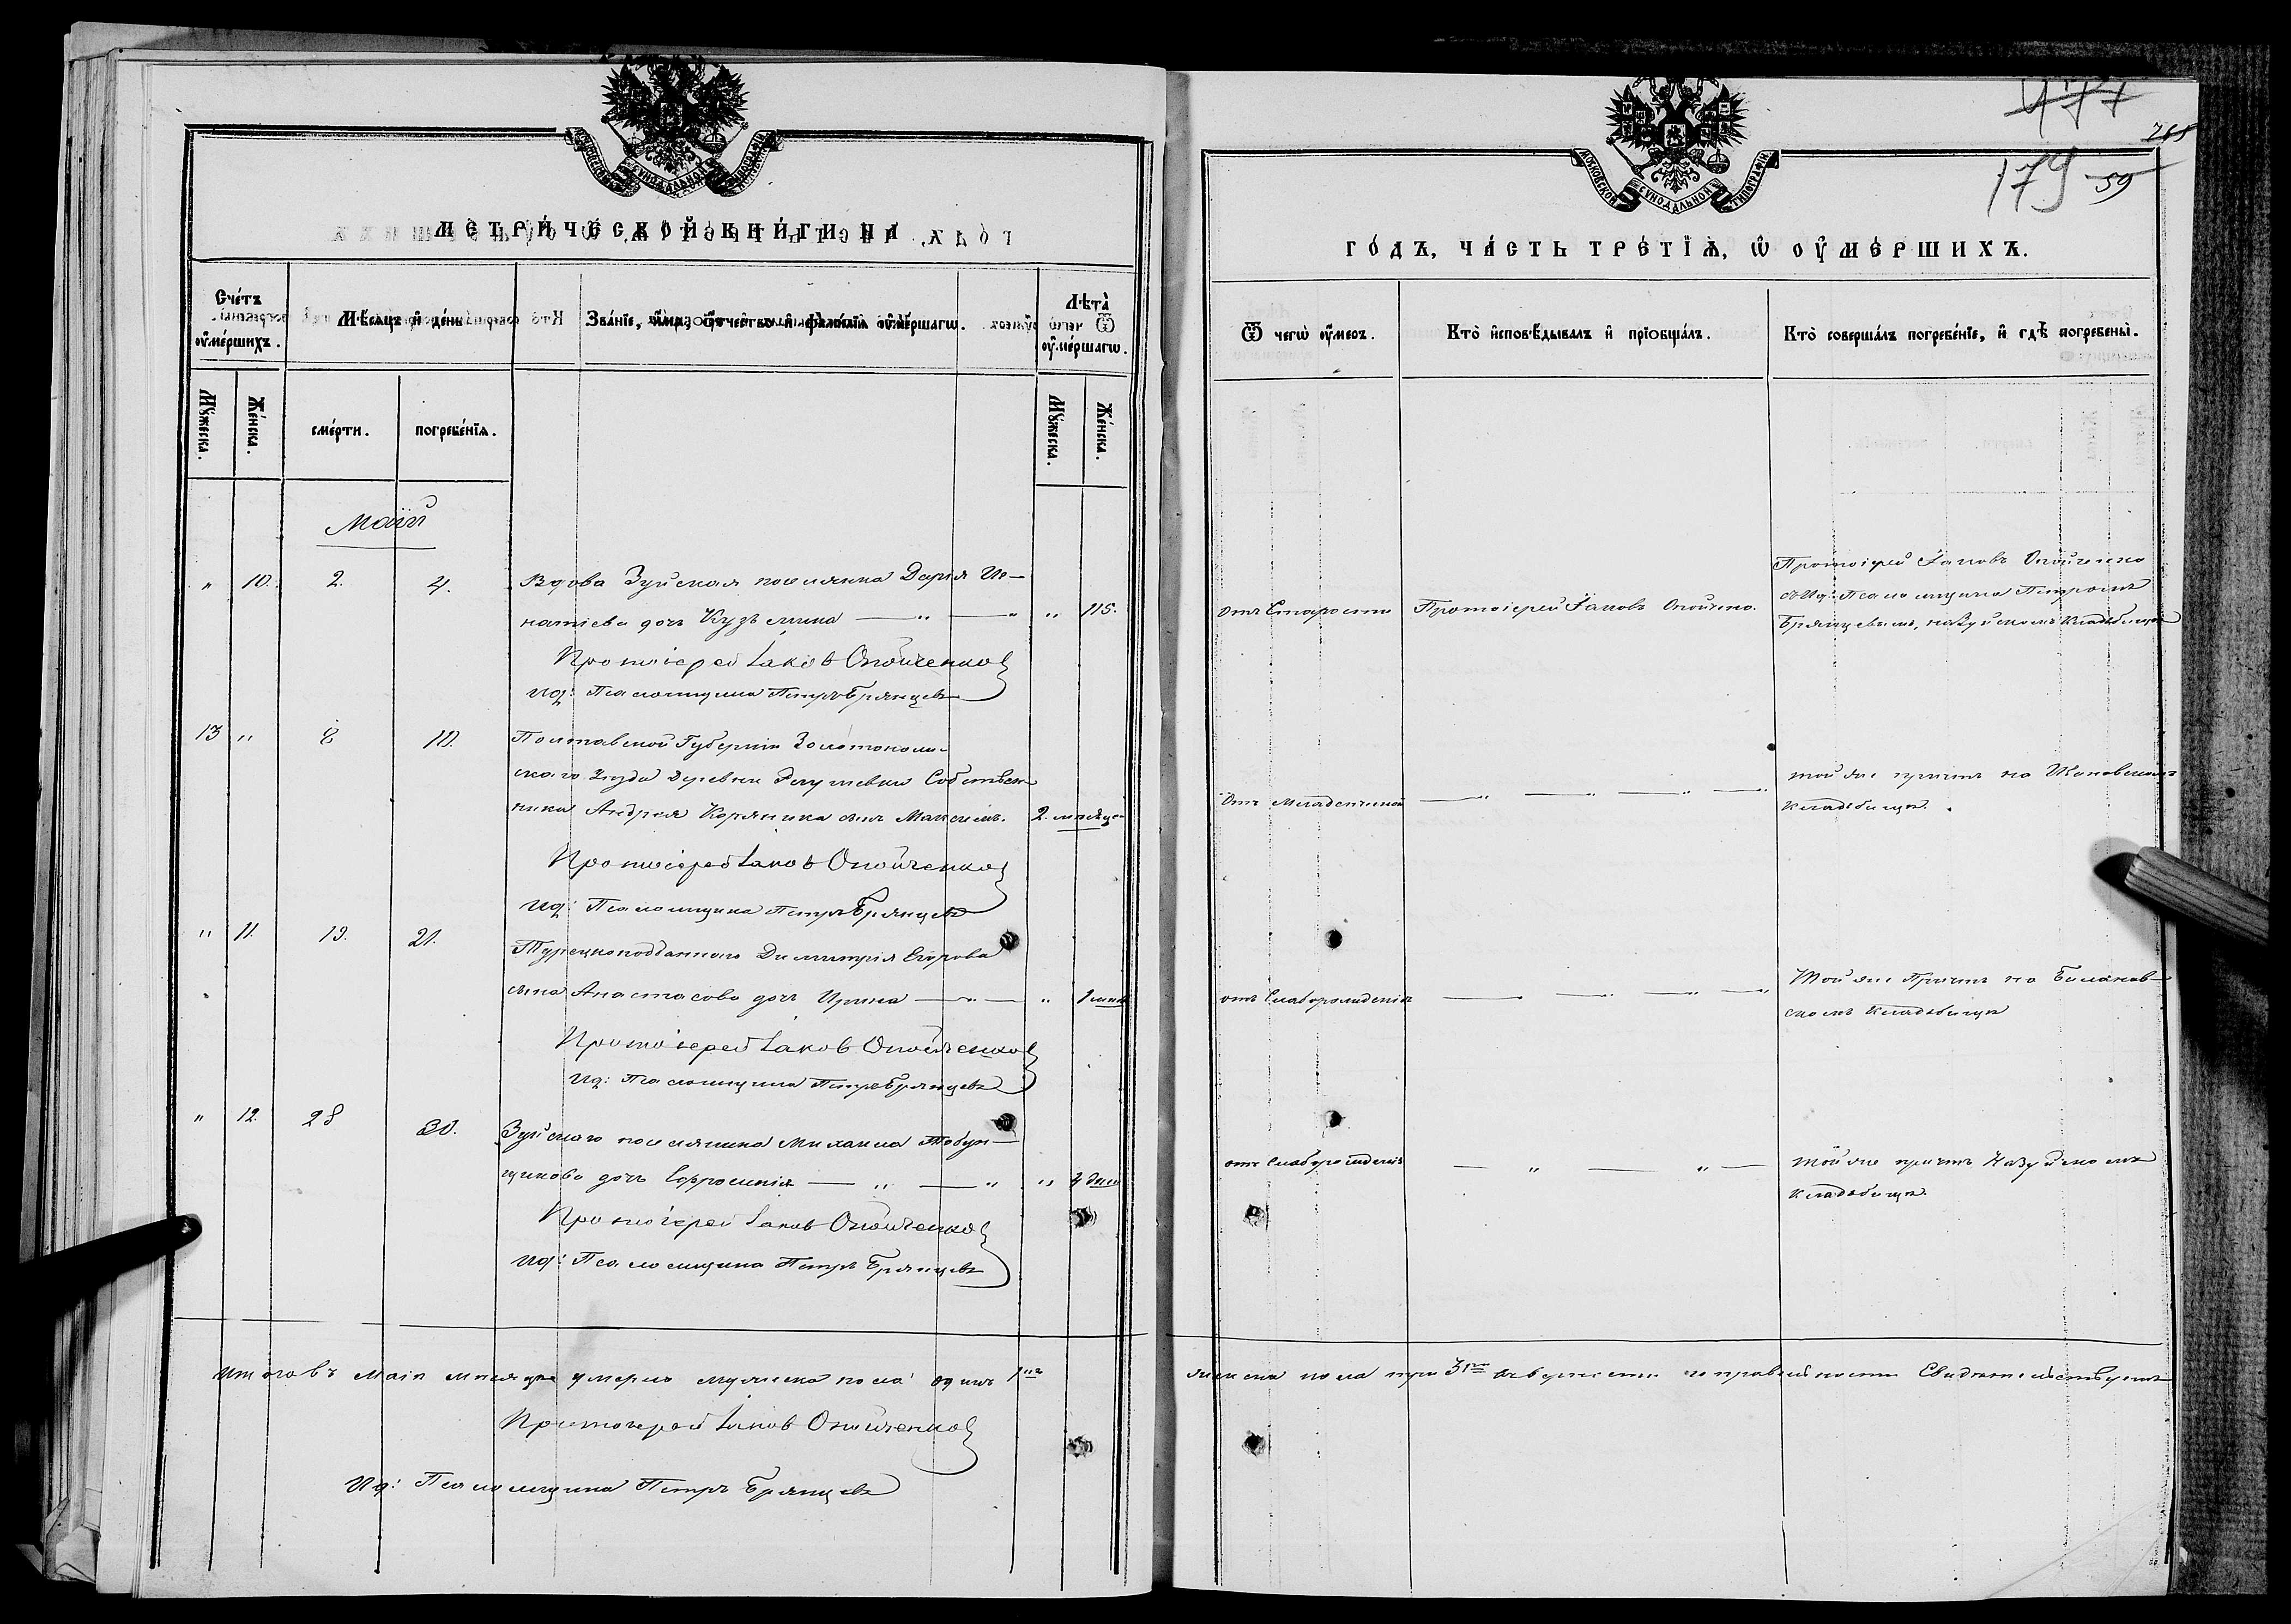 МЕТРИЧЕСКОЙ КНИГИ НА
Счетъ оумершихъ.
Мѣсяцъ и день
Званіе, имя, отчество и фамилія оумершагѡ.
Лѣта оумершагѡ.
Мужеска.
Женска.
смерти.
погребенія.
Мужеска.
Женска.
Маій
" 10. 2. 4. Вдова Зуйская поселянка Дарія Иг-
натіева дочь Кузьмина " 115.
Протоіерей Іаковъ Опойченко
Ид: Псаломщика Петръ Брянцевъ
13 " 8 10. Полтавской Губерніи Золотоношь-
скаго Уезда Деревни Собствен-
ника Андрея Коряника сынъ Максимъ. 2. месяце
Протоіерей Іаковъ Опойченко
Ид: Псаломщика Петръ Брянцевъ
" 11. 19. 21. Турецкоподданнаго Димитрія Егорова
сына Анастасова дочь Ирина "
Протоіерей Іаковъ Опойченко
Ид: Псаломщика Петръ Брянцевъ
" 12. 28 30. Зуйскаго поселянина Михаила Табун-
щикова дочь Евфросинія " дня
Протоіерей Іаковъ Опойченко
Ид: Псаломщика Петръ Брянцевъ
Итого въ Маіе месяце умерло мужеска пола одинъ 1нъ
Протоіерей Іаковъ Опойченко
Ид: Псаломщика Петръ Брянцевъ
МОСКОВСКОЙ СУНОДАЛЬНОЙ ТИПОГРАФІИ
477
179
59
ГОДЪ, ЧАСТЬ ТРЕТІЯ, Ѡ ОУМЕРШИХЪ.
Ѿ чегѡ оумеръ.
Кто исповѣдывалъ и пріобщалъ.
Кто совершалъ погребеніе, и гдѣ погребены.
отъ Старости
Протоіерей Іаковъ Опойченко.
Протоіерей Іаковъ Опойченко
съ Ид: Псаломщика Петромъ
Брянцевымъ, на Зуйскомъ Кладбище
Отъ младенческой
той же причтъ на
кладбище.
отъ Слаборожденія
Той же Причтъ на
скомъ кладбище
отъ Слаборожденія
той же причтъ На Зуйскомъ
кладбище.
женска пола три 3ри въ верности и правильности Свидетельствуемъ